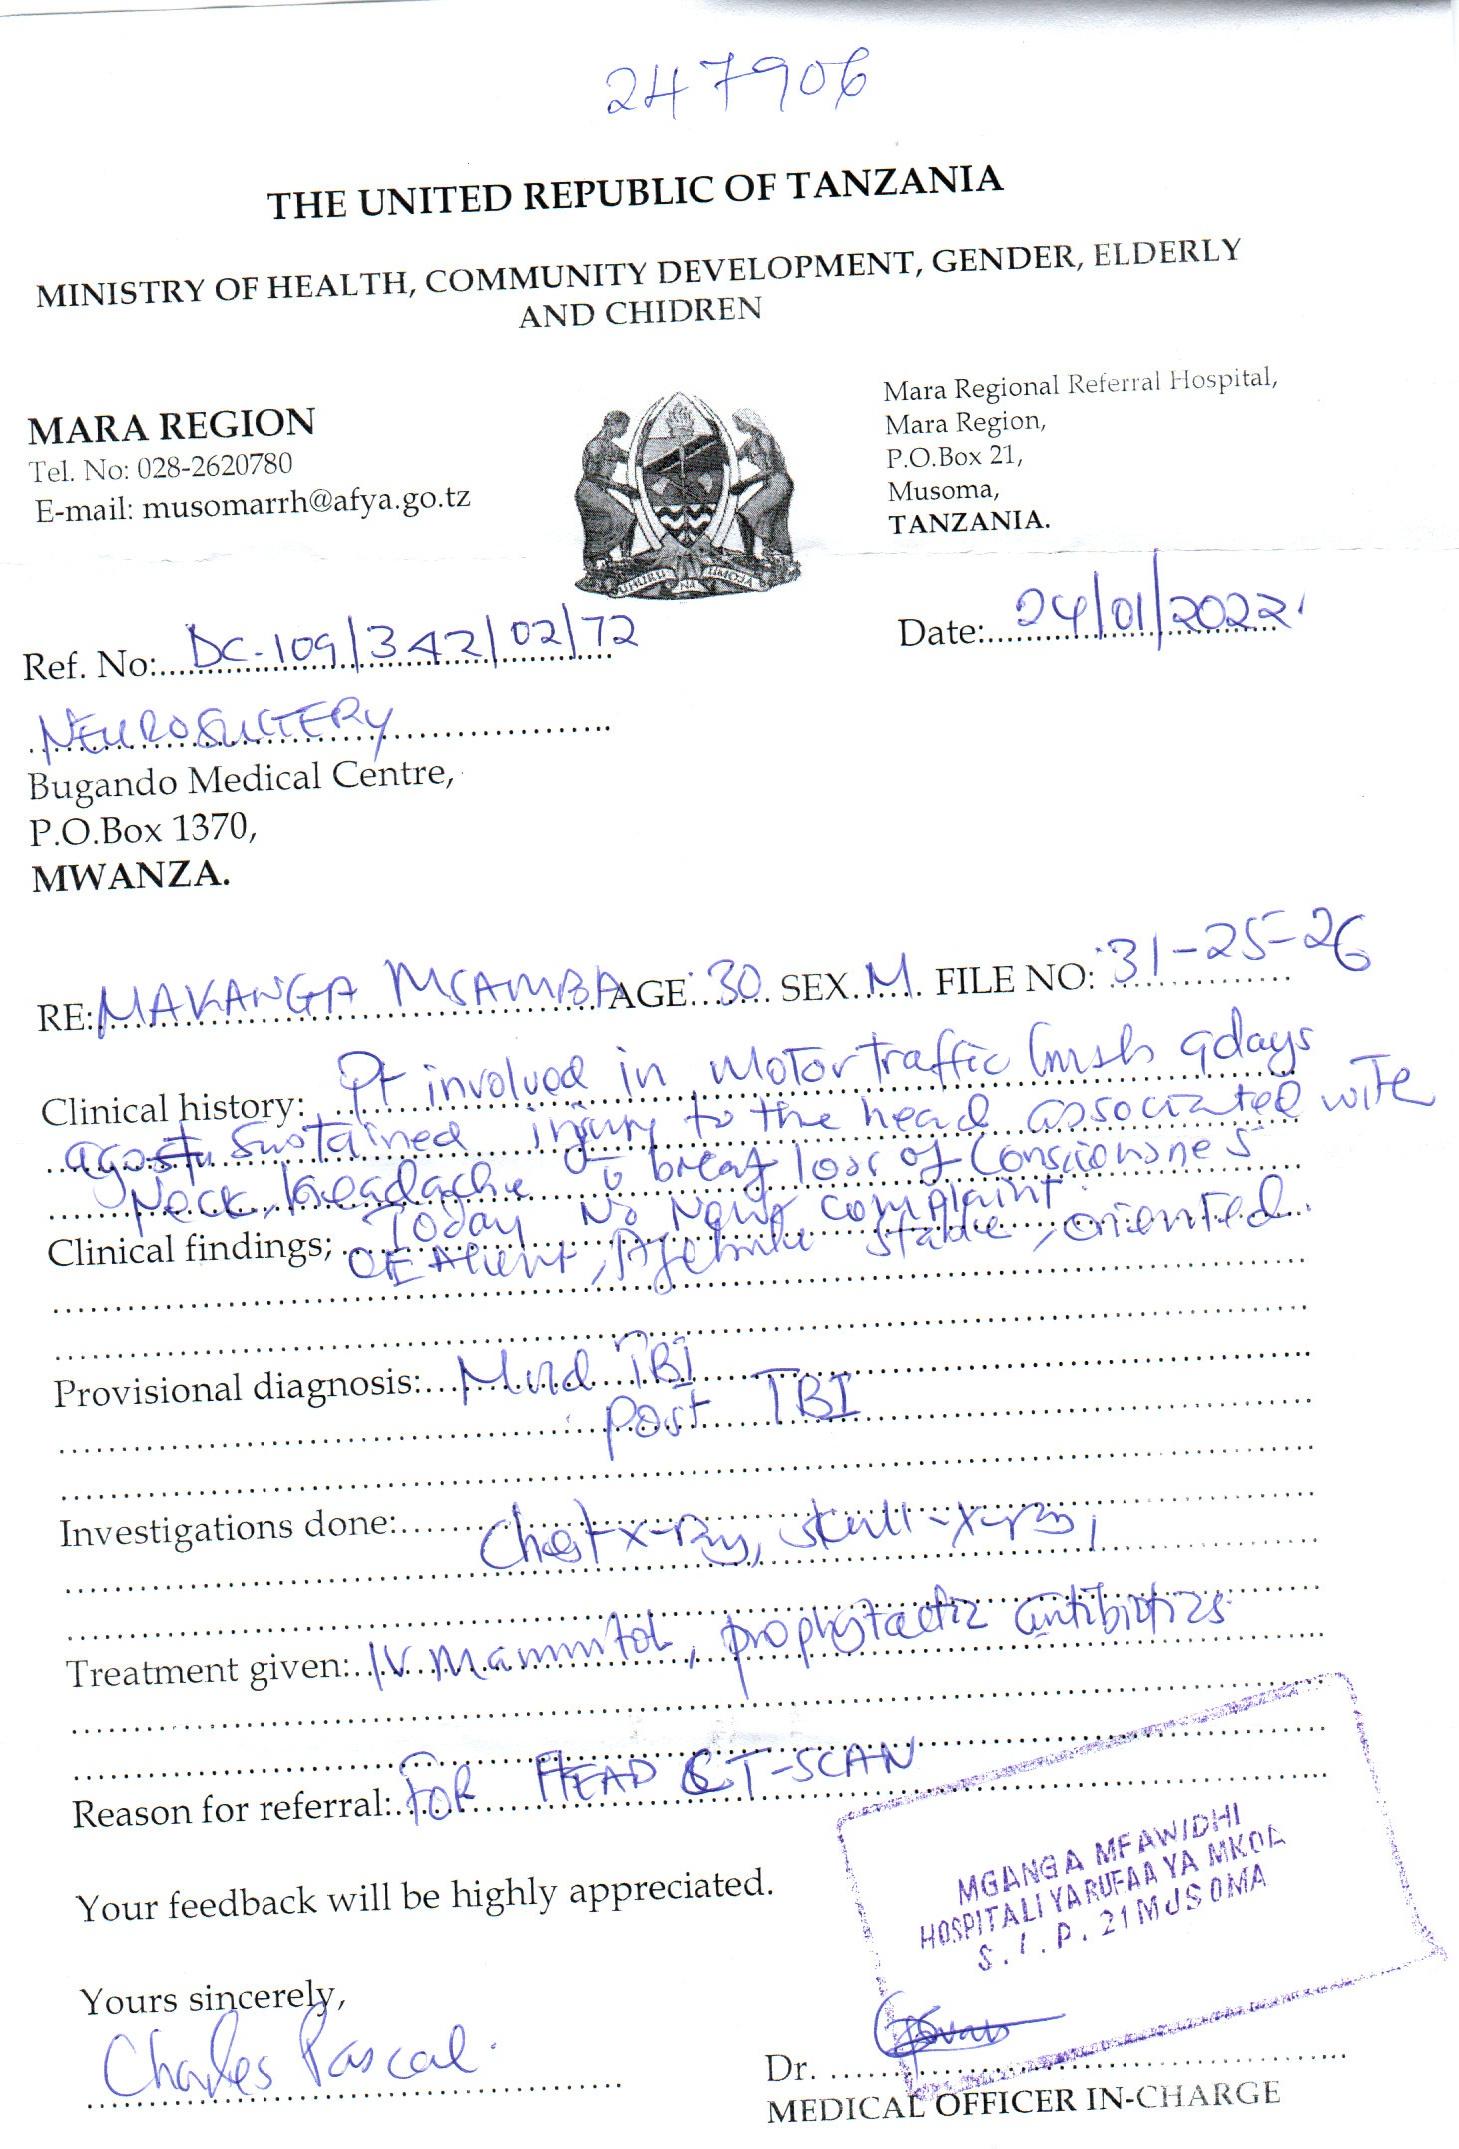 247906
THE UNITED REPUBLIC OF TANZANIA
MINISTRY OF HEALTH, COMMUNITY DEVELOPMENT, GENDER, ELDERLY
AND CHIDREN
MARA REGION
Tel. No: 028-2620780
E-mail: musomarrh@afya.go.tz
Mara Regional Referral Hospital,
Mara Region,
P.O.Box 21,
Musoma,
TANZANIA.
UHURU NA UMOJA
Ref. No: DC-109/342/02/72
Date: 24/01/2022
NEUROSUGERY
Bugando Medical Centre,
P.O.Box 1370,
MWANZA.
RE: MAKANGA MSAMBA AGE: 30 SEX. M. FILE NO: 31-25-26
Clinical history: Pt involved in Motor traffic 9days
ago sustained injury to the head associated with
Neck, headache loss of
Today No New complaint
Clinical findings; OE , Afebrile , oriented.
Provisional diagnosis: Mild TBI
Post TBI
Investigations done: Chest x-ray, skull-x-ray,
Treatment given: IV mannitol, prophylactic antibiotics
Reason for referral: FOR HEAD CT-SCAN
Your feedback will be highly appreciated.
MGANGA MFAWIDHI
HOSPITALI YA RUFAA YA MKOA
S.L.P. 21 MUSOMA
Yours sincerely,
Charles Pascal.
Dr.
MEDICAL OFFICER IN-CHARGE